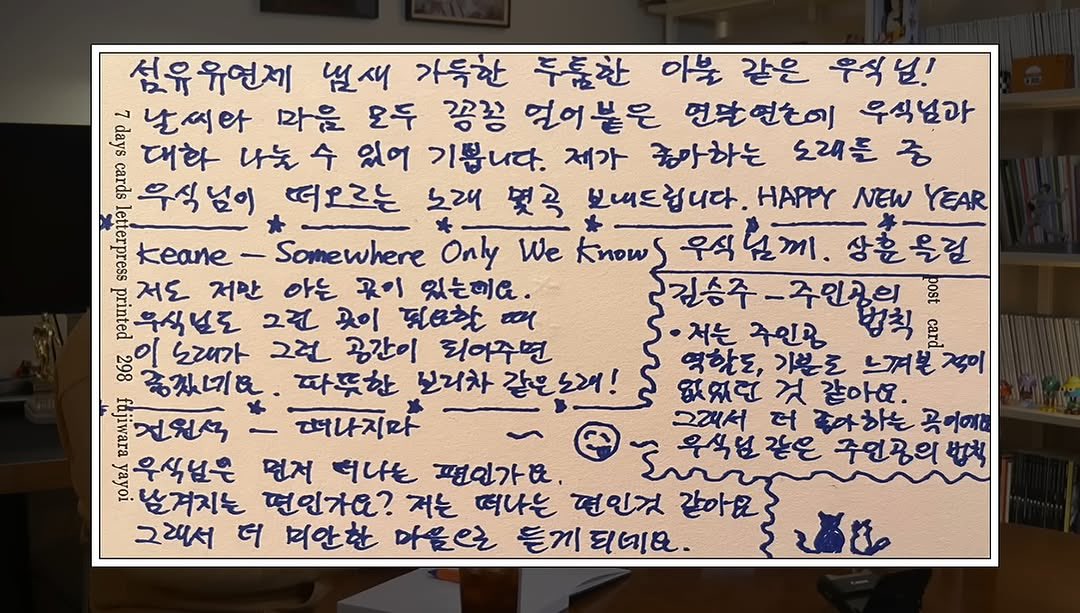 섬유유연제 냄새 가득한 두툼한 이불 같은 우식님!
날씨와 마음 모두 꽁꽁 얼어붙은 연말연초에 우식님과
대화 나눌 수 있어 기쁩니다. 제가 좋아하는 노래들 중
우식님이 떠오르는 노래 몇곡 보내드립니다. HAPPY NEW YEAR
Keane - Somewhere Only We Know
저도 저만 아는 곳이 있는데요.
우식님도 그런 곳이 필요할 때
이 노래가 그런 공간이 되어주면
좋겠네요. 따뜻한 보리차 같은 노래!
우식님께. 상훈 드림
김승주 - 주인공의
법칙
• 저는 주인공
역할도, 기분도 느껴본 적이
없었던 것 같아요.
그래서 더 좋아하는 곡이에요
우식님 같은 주인공의 법칙
전원석 - 떠나지마
우식님은 먼저 떠나는 편인가요.
남겨지는 편인가요? 저는 떠나는 편인것 같아요
그래서 더 미안한 마음으로 듣게되네요.
7 days cards letterpress printed 298 fujiwara yayoi
post card